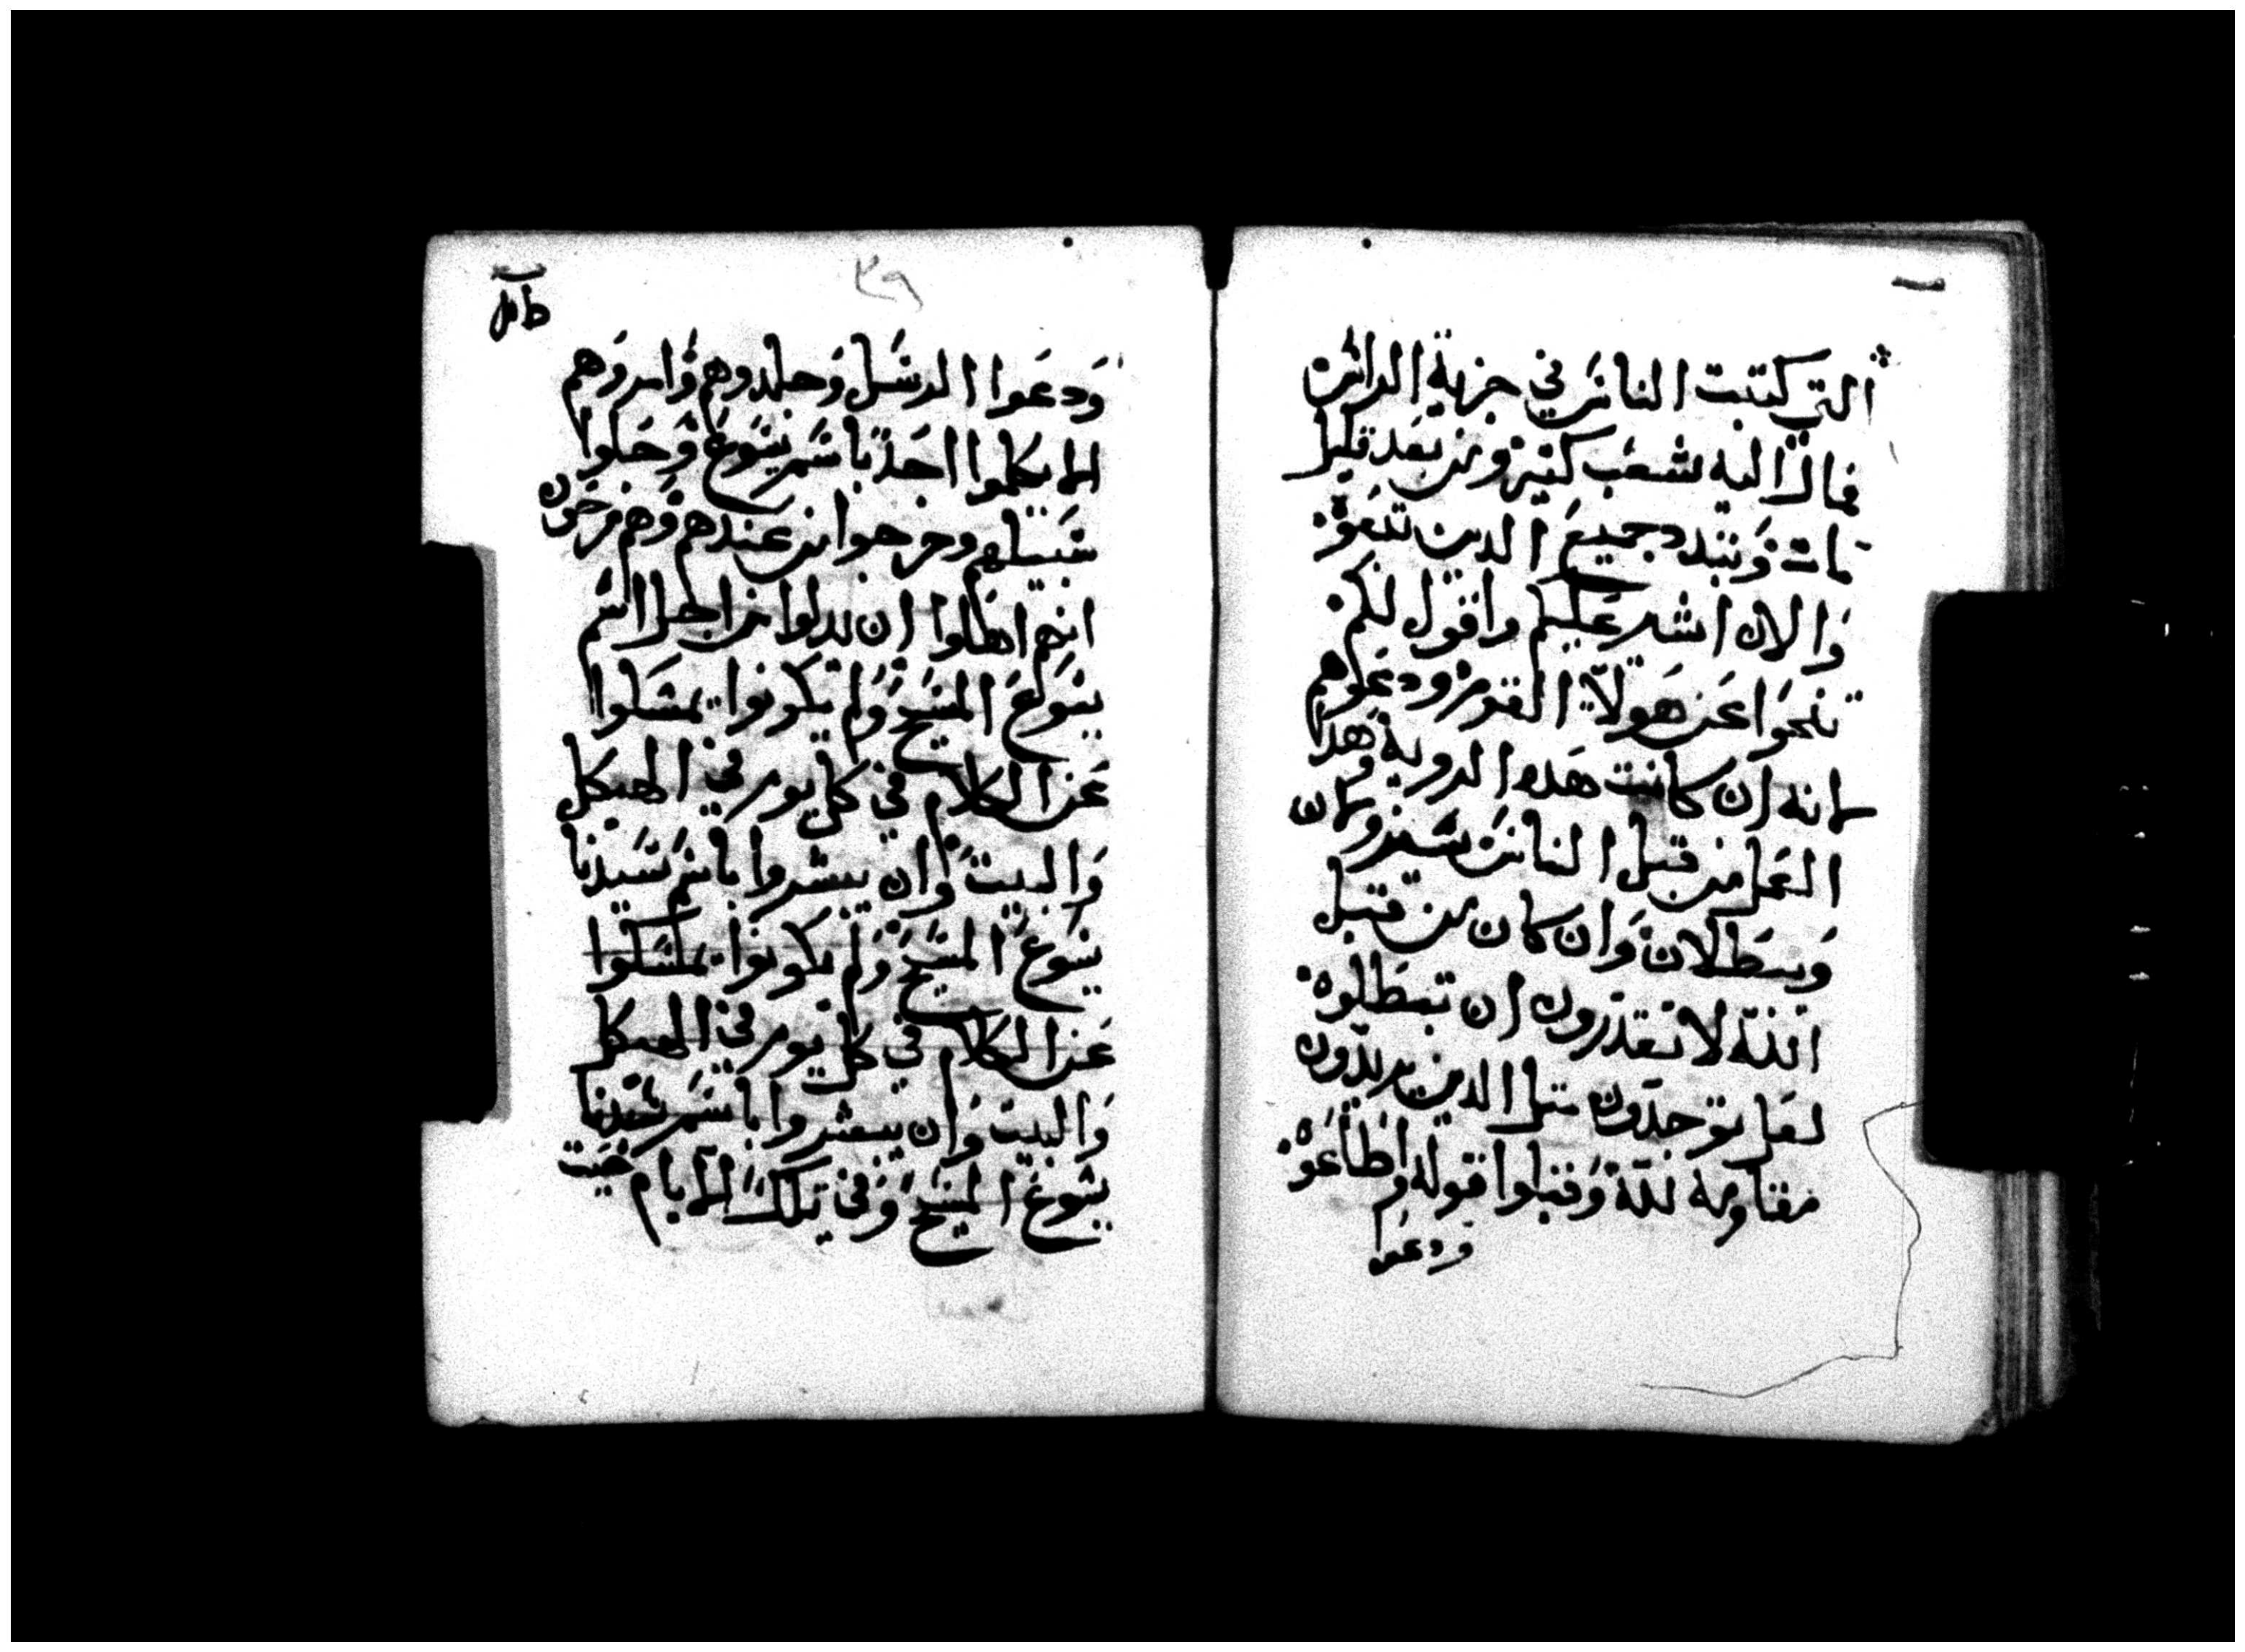 التي كتبت الناس في جزية الراس
فمال اليه شعب كثير ومن بعد قليل
مات وتبدد جميع الدين تبعوه
والان اشير عليكم واقول لكم
تنحوا عن هولاء القوم ودعوهم
لانه ان كانت هده الروية وهدا
العمل من قبل الناس سينزولان
وسيطلان وان كان من قبل
الله لا تقدرون ان تبطلوه
لعل توجدون مثل الدين يريدون
مقاومة لله وقبلوا قوله واطاعوه
ودعوا
٣٩
ودعوا الرسل وجلدوهم وامروهم
الا يكلموا احد باسم يسوع وخلوا
سبيلهم وخرجوا من عندهم وهم فرحون
انهم اهلوا ان يدلوا من اجل اسم
يسوع المسيح ولم يكونوا يمسكوا
عن الكلام في كل يوم في الهيكل
والبيت وان يبشروا باسم سيدنا
يسوع المسيح ولم يكونوا يمسكوا
عن الكلام في كل يوم في الهيكل
والبيت وان يبشروا باسم سيدنا
يسوع المسيح وفي تلك الايام حيت